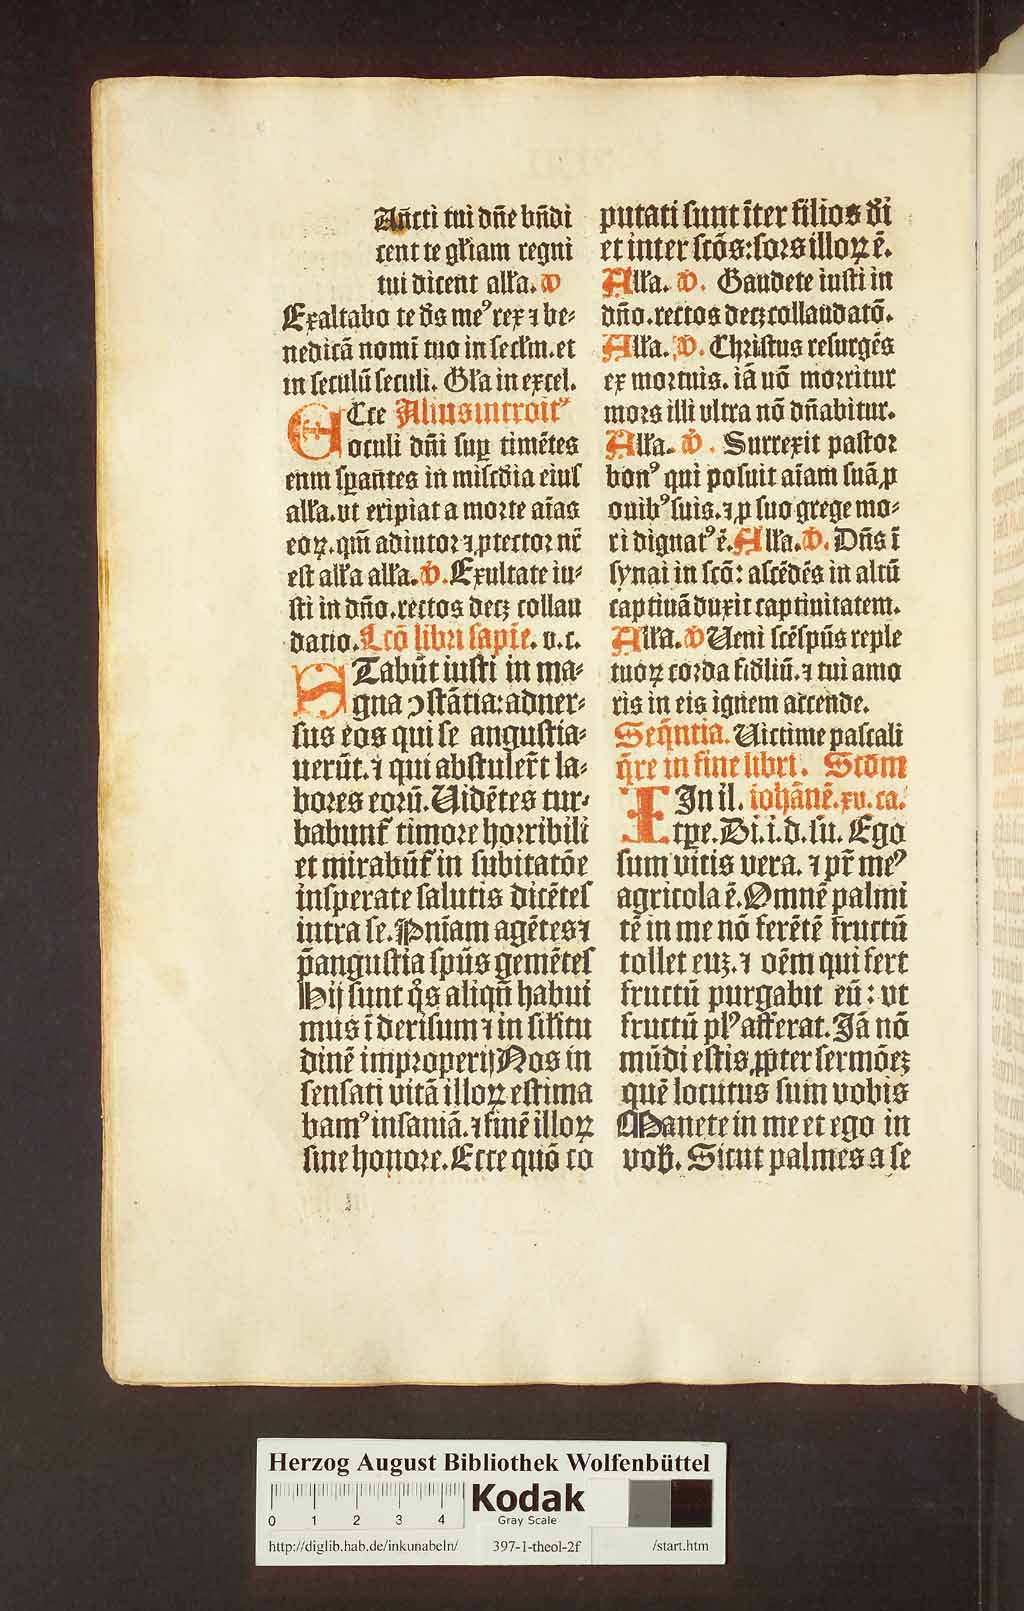 Añcti tui dñe bñdi
cent te gl̃iam regni
tui dicent all̃a. v̾
Exaltabo te d̃s me⁹ rex ⁊ be⸗
nedicā nomī tuo in secl̃m. et
in seculū seculi. Gl̃a in excel.
ECce Alius introit⁹
oculi dñi suꝑ timētes
eum sꝑantes in miscd̃ia eius
all̃a. vt eripiat a morte aīas
eoꝝ. qm̄ adiutor ⁊ ꝓtector nr̄
est all̃a all̃a. v̾. Exultate iu⸗
sti in dño. rectos decꝫ collau
datio. Lcō libri sapiē. v. c.
STabūt iusti in ma⸗
gna ↄstātia: aduer⸗
sus eos qui se angustia⸗
uerūt. ⁊ qui abstulert̄ la⸗
bores eorū. Uidētes tur⸗
babunt̃ timore horribili
et mirabūt̃ in subitatōe
insperate salutis dicētes
intra se. Pniam agētes ⁊
p̄ angustia spūs gemētes
Hij sunt q̊s aliqñ habui
mus ī derisum ⁊ in sil̃itu
dinē improperij Nos in
sensati vitā illoꝝ estima
bam⁹ insaniā. ⁊ finē illoꝝ
sine honore. Ecce quō cō
putati sunt īter filios d̃i
et inter scōs: sors illoꝝ ē.
All̃a. v̾. Gaudete iusti in
dño. rectos decꝫ collaudatō.
All̃a. v̾. Christus resurgēs
ex mortuis. iā nō morritur
mors illi vltra nō dñabitur.
All̃a. v̾. Surrexit pastor
bon⁹ qui posuit aīam suā ꝓ
ouib⁹ suis. ⁊ ꝓ suo grege mo⸗
ri dignat⁹ ē. All̃a. v̾. Dñs ī
synai in scō: ascēdēs in altū
captiuā duxit captiuitatem.
All̃a. v̾ Ueni scē spūs reple
tuoꝝ corda fidliū. ⁊ tui amo
ris in eis ignem accende.
Seq̄ntia. Uictime pascali
q̄re in fine libri. Scdm
IIn il. iohānē. xv. ca.
tp̄e. Di. i. d. su. Ego
sum vitis vera. ⁊ pr̄ me⁹
agricola ē. Omnē palmi
tē in me nō ferētē fructū
tollet euꝫ. ⁊ oēm qui fert
fructū purgabit eū: vt
fructū pl⁹ afferat. Jā nō
mūdi estis ꝓpter sermōeꝫ
quē locutus sum vobis
Manete in me et ego in
vob̃. Sicut palmes a se
Herzog August Bibliothek Wolfenbüttel
0 1 2 3 4
Kodak
Gray Scale
http://diglib.hab.de/inkunabeln/ 397-1-theol-2f /start.htm